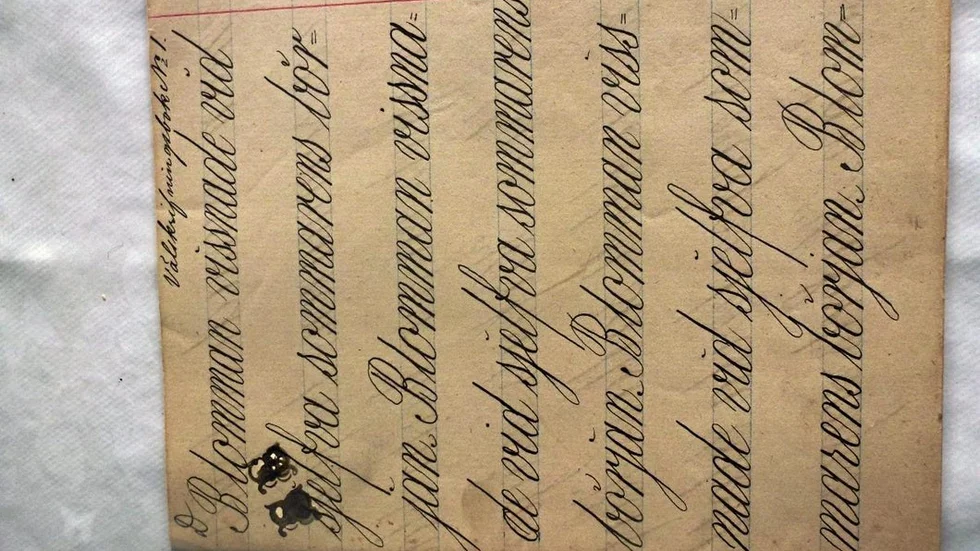 Välskrifningsbok № 1.
Blomman vissnade vid
sjelfva sommarens bör=
jan. Blomman vissna=
de vid sjelfva sommarens
början. Blomman viss=
nade vid sjelfva som=
marens början. Blom=